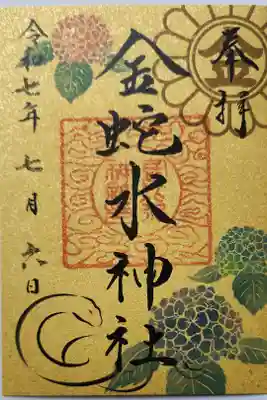 奉拝
金
金蛇水神社
令和七年 七月 六日